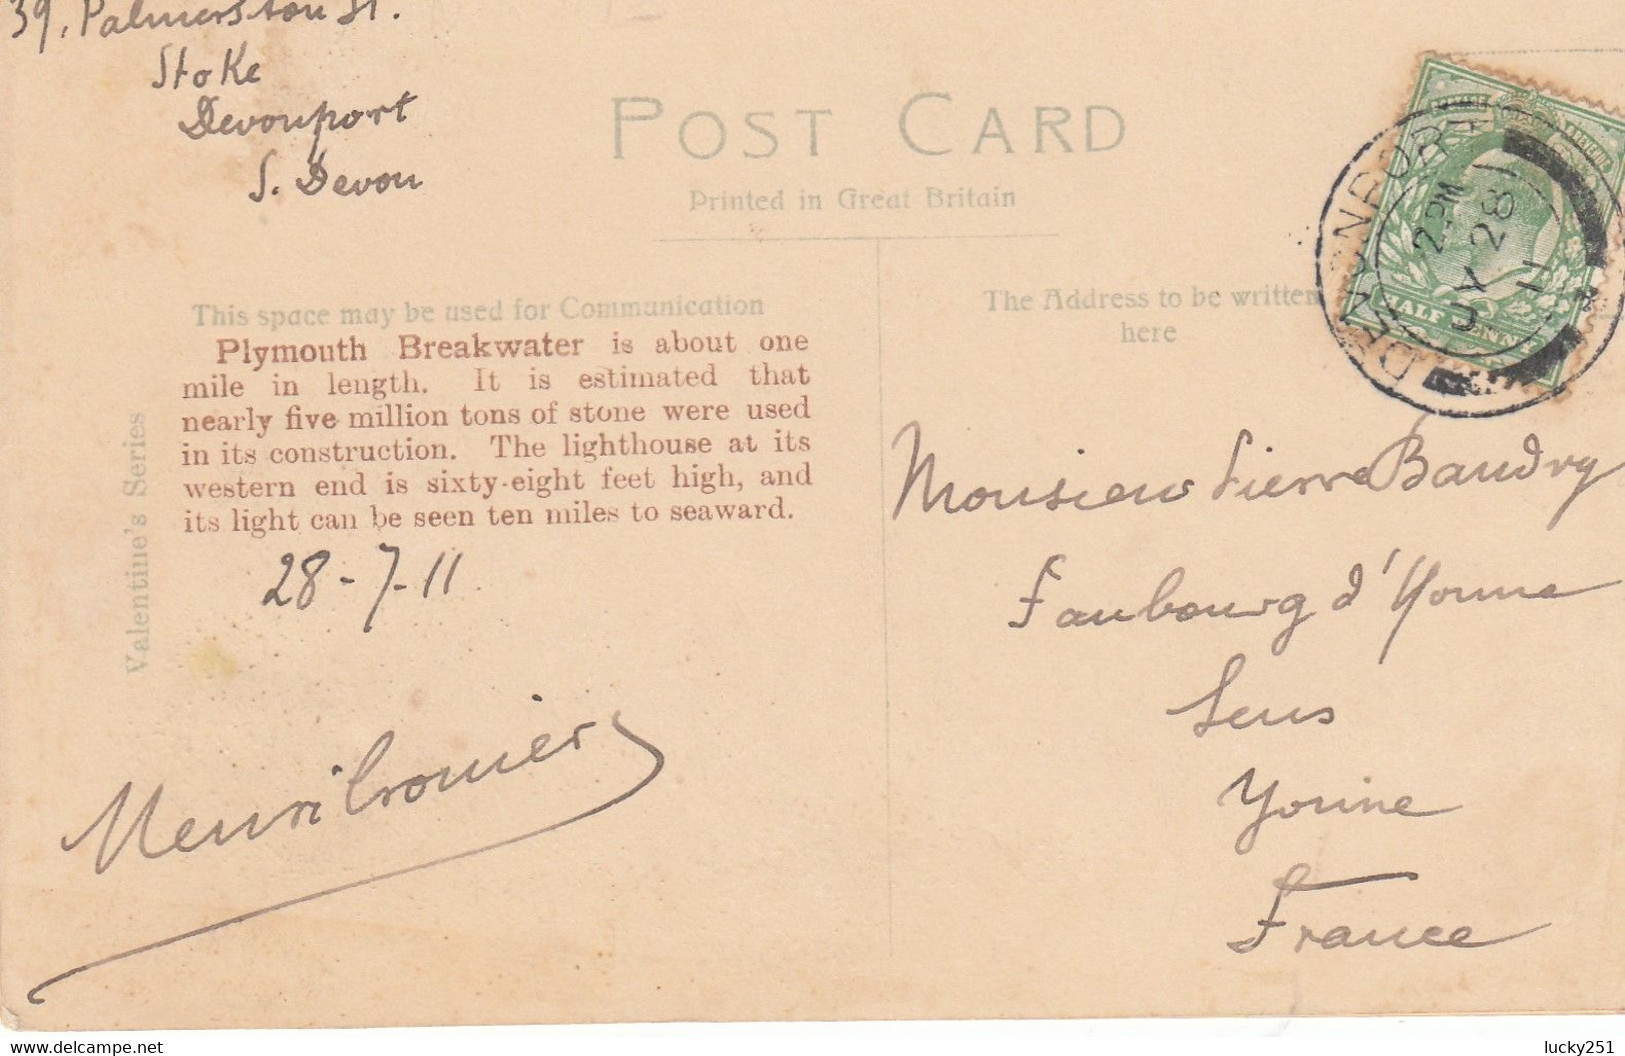 39, Palmerston St.
Stoke
Devonport
S. Devon
POST CARD
Printed in Great Britain
This space may be used for Communication
The Address to be written
here
Plymouth Breakwater is about one
mile in length. It is estimated that
nearly five million tons of stone were used
in its construction. The lighthouse at its
western end is sixty-eight feet high, and
its light can be seen ten miles to seaward.
Valentine's Series
28-7-11
DEVONPORT
2. PM
JY 28
11
HALF PENNY
Monsieur Pierre Baudry
Faubourg d'Yonne
Sens
Yonne
France
delcampe.net
lucky251